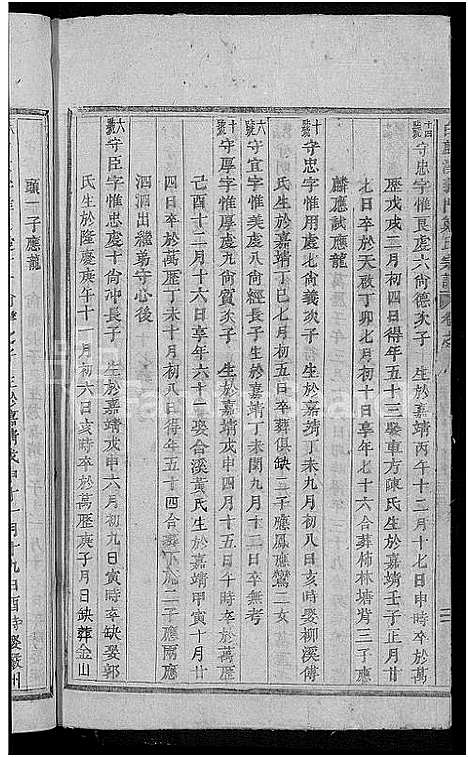 十四號守忠字惟良處六尙德次子 生於嘉靖丙午十二月十七日申時卒於萬
歷戊戌三月初四日得年五十三娶車方陳氏生於嘉靖壬子正月廿
七日卒於天啟丁卯七月初八日享年七十六合葬柿林塘肖三子應
麟應試應龍
十號守忠字惟用處十尙義次子 生於嘉靖丁未九月初八日亥時娶柳溪傅
氏生於嘉靖丁巳七月初五日卒葬俱缺二子應鳳應鸞二女
六號守宜字惟美處八尙經長子 生於嘉靖丁未閏九月十二日卒無考
十號守厚字惟厚處九尙賀次子 生於嘉靖戊申四月十五日午時卒於萬歷
己酉十二月十六日享年六十二娶合溪黃氏生於嘉靖甲寅十月廿
四日卒於萬歷丁未十月初二日得年五十四合葬下二子應兩應
泗泗出繼弟守心後
六號守臣字惟忠處十尙沖長子 生於嘉靖戊申六月初九日寅時卒缺娶郭
氏生於隆慶庚午十一月初六日亥時卒於萬歷庚子月日缺葬金山
頭一子應龍
生於嘉靖十一月十九日酉時娶